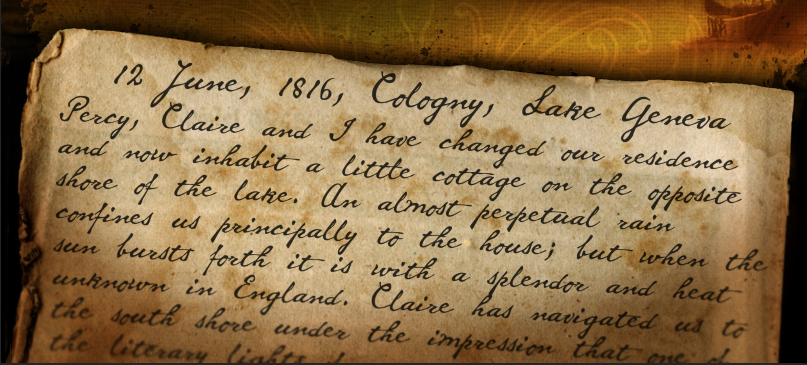 12 June, 1816, Cologny, Lake Geneva
Percy, Claire and I have changed our residence
and now inhabit a little cottage on the opposite
shore of the lake. An almost perpetual rain
confines us principally to the house; but when the
sun bursts forth it is with a splendor and heat
unknown in England. Claire has navigated us to
the south shore under the impression that one of
the literary lights